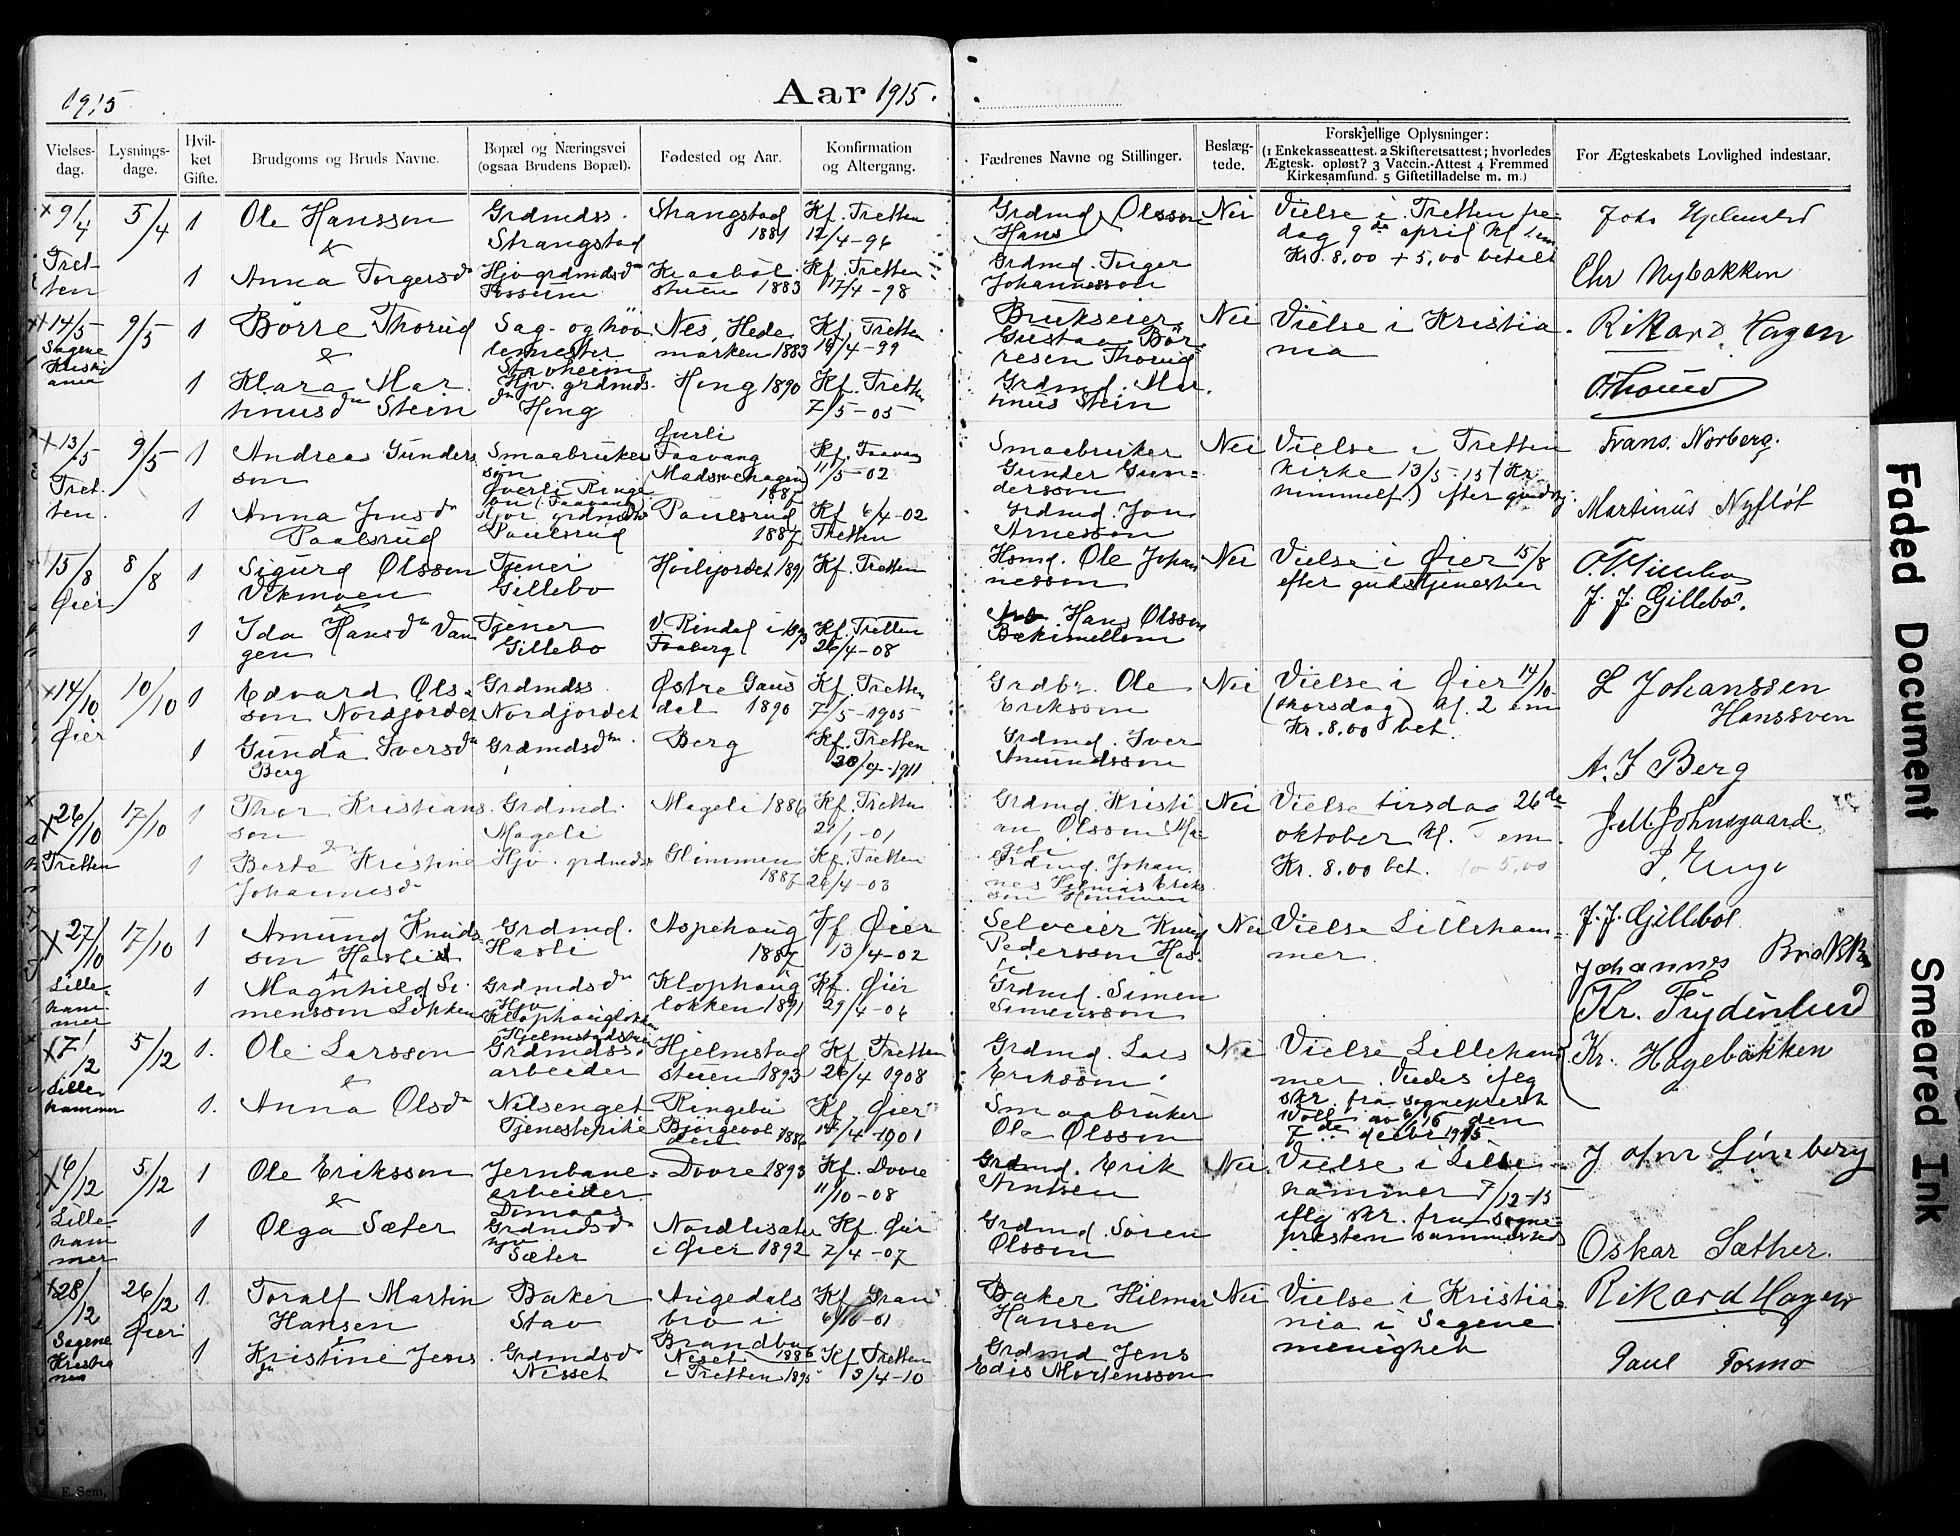 1915
Aar 1915.
Vielses-dag.
Lysnings-dage.
Hvil-ket Gifte.
Brudgoms og Bruds Navne.
Bopæl og Næringsvei (ogsaa Brudens Bopæl).
Fødested og Aar.
Konfirmation og Altergang.
Fædrenes Navne og Stillinger.
Beslæg-tede.
Forskjellige Oplysninger:
(1 Enkekasseattest. 2 Skifteretsattest; hvorledes
Ægtesk. opløst? 3 Vaccin.-Attest 4 Fremmed
Kirkesamfund. 5 Giftetilladelse m. m.)
For Ægteskabets Lovlighed indestaar.
9/4
Tret-
ten
5/4
1
Ole Hansson
&
Grdmdss.
Strangstad
Strangstad
1881
Kf. Tretten
12/4-96
Grdmd. Olsson
Hans
Nei
Vielse i Tretten fre
dag 9de april kl
Kr. 8,00 + 5,00 betalt
1
Anna Torgersdr
Hjv. grdmdsdr
Kraabøl
stuen 1883
Kf. Tretten
17/4-98
Grdmd. Torger
Johannesson
Chr Nybakken
14/5
Sagene
Kristi
ania
9/5
1
Børre Thorud
&
Sag- og høv
lemester
Nes, Hede
marken 1883
Kf. Tretten
19/4-99
Brukseier
Gustav Bör
resen Thorud
Nei
Vielse i Kristia
nia
Rikard Hagen
1
Klara Mar
tinusdr Stein
Hjv. grdmds
dr Hong
Hong 1890
Kf. Tretten
7/5-05
Grdmd. Mar
tinus Stein
O Thorud
13/5
Tret-
ten.
9/5
1
Andreas Gunders
son
Smaabruker
søn
Øverli Ringe
bu (Faavang)
Øverli
Faavang
(Madsvehagen)
1887
Kf. Faavang
11/5-02
Smaabruker
Gunder Gun-
dersson
Nei
Vielse i Tretten
kirke 13/5-15 (Kr.
himmelf.) efter gudstj.
Frans. Norberg.
1
Anna Jonsdr
Paalsrud
Hjv. grdmdsdr
Paulsrud
Paulsrud
1887
Kf 6/4-02
Tretten
Grdmd. Jon
Arnesson
Martinus Nyfløt
15/8
Øier
8/8
1
Sigurd Olsson
Vikmoen
&
Tjener
Gillebo
Høilijordet 1891
Kf. Tretten
Hsmd. Ole Johan
nesson
Nei
Vielse i Øier 15/8
efter gudstjenesten
J. J. Gillebo.
1
Ida Hansdr Van
gen
Tjener
Gillebo
N Rindal i
Faaberg
Kf. Tretten
26/4-08
Hans Olsson
Bækimellom
14/10
Øier
10/10
1
Edvard Ols-
son Nordjordet
&
Grdmdss.
Nordjordet
Østre Gaus
dal 1890
Kf. Tretten
7/5-1905
Grdbr. Ole
Eriksson
Nei
Vielse i Øier 14/10
(torsdag) kl. 2 em
Kr. 8.00 bet.
L Johanssen
Hanssven
1
Gunda Iversdr
Berg
Grdmdsdr
Berg
Kf. Tretten
30/4-1911
Grdmd. Iver
Amundsson
A. J Berg
26/10
Tretten
17/10
1
Thor Kristians
son
&
Grdmd.
Mageli
Mageli 1886
Kf. Tretten
21/1-01
Grdmd. Kristi
an Olsson Ma
geli
Nei
Vielse tirsdag 26de
oktober kl. em.
Kr. 8.00 bet. do 5,00
J. M. Johnsgaard.
1
Berte Kristine
Johannesdr
Hjv. grdmds
Himmen
1887
Kf. Tretten
26/4-03
Grdmd. Johan
nes Eriks
son
27/10
Lille-
ham-
mer
17/10
1
Amund Knuds
son Hasli
&
Grdmd.
Hasli
Aspehaug
1887
Kf Øier
13/4-02
Selveier Knud
Pedersson Has
li
Nei
Vielse Lilleham-
mer.
J. J. Gillebo
1
Magnhild Si
mensson Løkken
Grdmdsdr
Hjv
Klophauglokken
Klophaug
lokken 1891
Kf. Øier
29/4-06
Grdmd. Simen
Simensson
Johannes
Kr. Frydenlund
7/12
Lille-
hammer
5/12
1.
Ole Larsson
&
Hjelmstadstuen
Grdmdss.
arbeider
Hjelmstad
stuen 1893
Kf. Tretten
26/4 1908
Grdmd. Lars
Eriksson
Nei
Vielse Lilleham
mer. Viedes iflg
skr. fra sogneprest
Voll av 6/16 den
7de decbr 1915.
Kr. Hagebakken
1.
Anna Olsdr
Nilsenget
Tjenestepike
Ringebu
1886
Kf. Øier
14/4-1901
Smaabruker
Ole Olsson
6/12
Lille-
ham
mer
5/12
1
Ole Eriksson
&
Jernbane-
arbeider
Domaas
Dovre 1893
Kf. Dovre
11/10-08
Grdmd. Erik
Arntsen
Nei
Vielse i Lille-
hammer 7/12-15
iflg skr. fra sogne-
presten sammesteds
1
Olga Sæter
Grdmdsdr
hjv
Sæter
Nordlisæter
i Øier 1892
Kf. Øier
7/4-07
Grdmd. Søren
Olsson
Oskar Sæther.
28/12
Sagene
Kristia
nia
26/12
Øier
1.
Toralf Martin
Hansen
&
Baker
Stav
Augedals
bro i
Brandbu
1886
Kf. Gran
6/10-01
Baker Hilmar
Hansen
Nei
Vielse i Kristia
nia i Sagene
menighet
Rikard Hagen
1
Kristine Jens
dr
Grdmdsdr
Nisset
Niset
i Tretten 1895
Kf Tretten
3/4-10
Grdmd Jens
Edis Mortensson
Paul Formo
E. Sem,
Faded Document
Smeared Ink